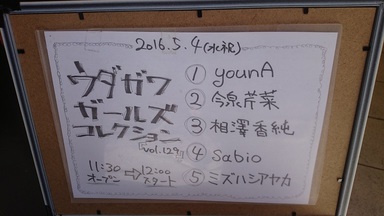 2016.5.4(水祝)
ウダガワ
ガールズ
コレクション
『vol.129』
11:30 ⇨ 12:00
オープン スタート
① younA
② 今泉芹菜
③ 相澤香純
④ Sabio
⑤ ミズハシアヤカ